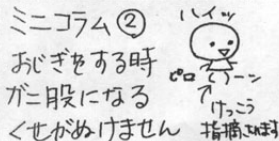 ミニコラム②
おじぎをする時
ガニ股になる
くせがぬけません
ハイッ
ピロリーン
けっこう
指摘されます